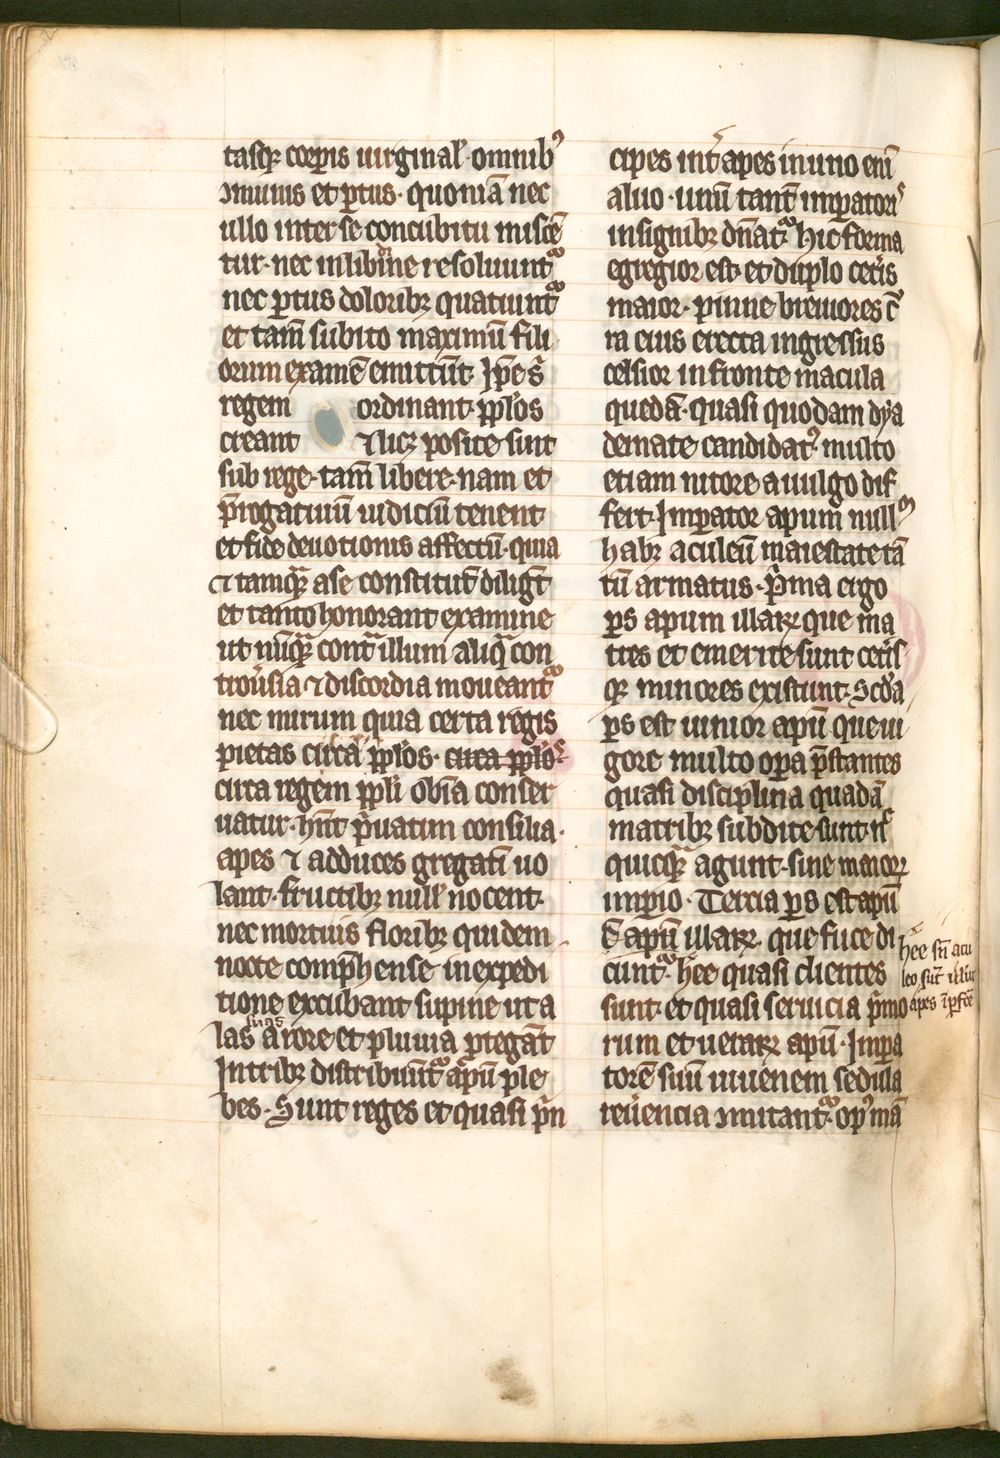 tasq; corp̲is uirginal' omnib᷒
ꝯmunis et p̲tus· quoniā nec
ullo inter se concubitu miscē
tur· nec in libidine resoluunt᷑
nec p̲tus dolorib; quatiunt᷑
et tam̄ subito maximū fili
orum examē emittūt· Ip̄e s̄
regem ordinant· pp̲los
creant ⁊ lic; posite sint
sub rege· tam̄ libere· nam et
p̄rogatiuū iudiciū tenent
et fide deuotionis affectū· quia
⁊ tamq̄; a se constitut̄ diligūt
et tanto honorant examine
ut nūq̄; cont̄ illum aliq̄ con
trou̾sia ⁊ discordia moueant᷑
nec mirum quia certa regis
pietas circa pp̲los· circa pp̲los
circa regem pp̲li obīa conser
uatur· hn̄t p̄uatim consilia·
apes ⁊ ad duces gregatī uo
lant· fructib; null' nocent·
nec mortuis florib; quidem
nocte comp̄hense in expedi
tione excubant supine ut a
las suas a rore et pluuia p̲tegāt
In trib; distribuūt᷑ apū ple
bes· Sunt reges et quasi p̄n
cipes int̄ apes in uno enī
aluo· unū tant̄ imp̲ator᷒
insignib; dn̄at᷑ hic forma
egregior est· et duplo cet̾is
maior· pinne breuiores c̄
ra eius erecta ingressus
celsior in fronte macula
quedā· quasi quodam dya
demate candidat᷒ multo
etiam nitore a uulgo dif
fert· Imp̲ator apum null᷒
hab; aculeū maiestate tā
tū armatus· p̄ma ergo
p̲s apum illaꝝ que ma
tres et emerite sunt cet̾is
q; minores existunt· Scd̄a
p̲s est iunior apū que ui
gore multo op̲a p̄stantes
quasi disciplina quadā
matrib; subdite sunt n̄
quicq̄; agunt· sine maioꝝ
imp̲io· Tercia p̲s est apū
apū illaꝝ que fuce di
cunt᷑· hee quasi clientes
sunt· et quasi seruicia p̄mo
rum et ueraꝝ apū· Imp̲a
torē suū iuuenem sedula
reu̾encia ꝯmitant᷑· op᷒ mā
hee sn̄ acu
leo sūt
apes īp̲fc̄e